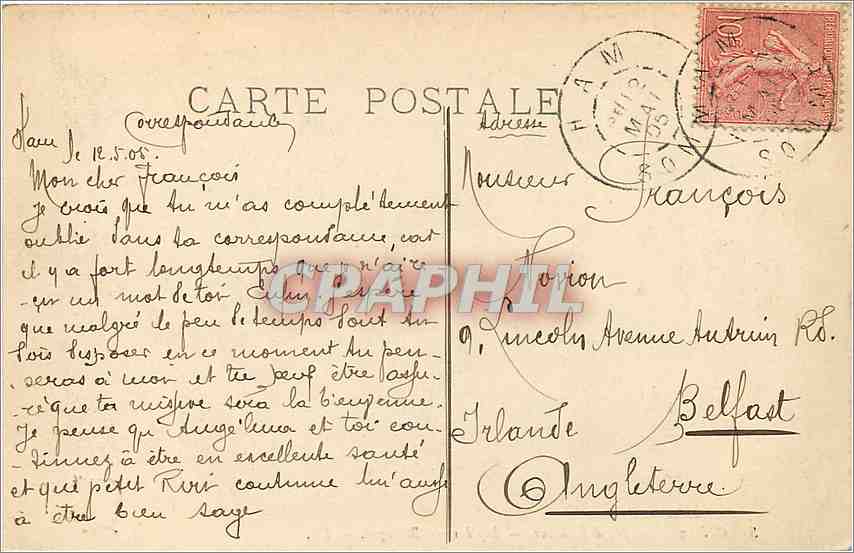 CARTE POSTALE
Correspondance
Ham le 12.5.05.
Mon cher François
Je crois que tu m'as complètement
oublié dans ta correspondance, car
il y a fort longtemps que j'ai re-
-çu un mot de toi Enfin j'espère
que malgré le peu de temps dont tu
dois disposer en ce moment tu pen-
-seras à moi et tu peux être assu-
-ré que ta missive sera la bienvenue.
Je pense qu'Angélina et toi con-
-tinuez à être en excellente santé
et que petit Riri continue lui aussi
à être bien sage
Adresse
Monsieur François
Norion
9, Lincoln Avenue Antrim Rd.
Belfast
Irlande
Angleterre
HAM
12
MAI
05
HAM
MAI
10c
CPAPHIL